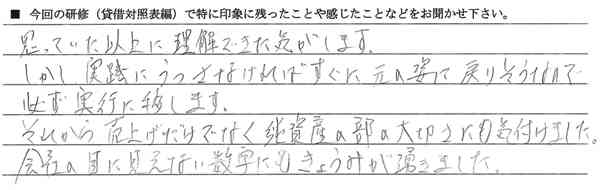 ■ 今回の研修（貸借対照表編）で特に印象に残ったことや感じたことなどをお聞かせ下さい。
思っていた以上に理解できた気がします。
しかし実践にうつさなければすぐに元の姿に戻りそうなので
必ず実行に移します。
それから売上げだけでなく総資産の部の大切さにも気付けました。
会社の目に見えない数字にもきょうみが湧きました。